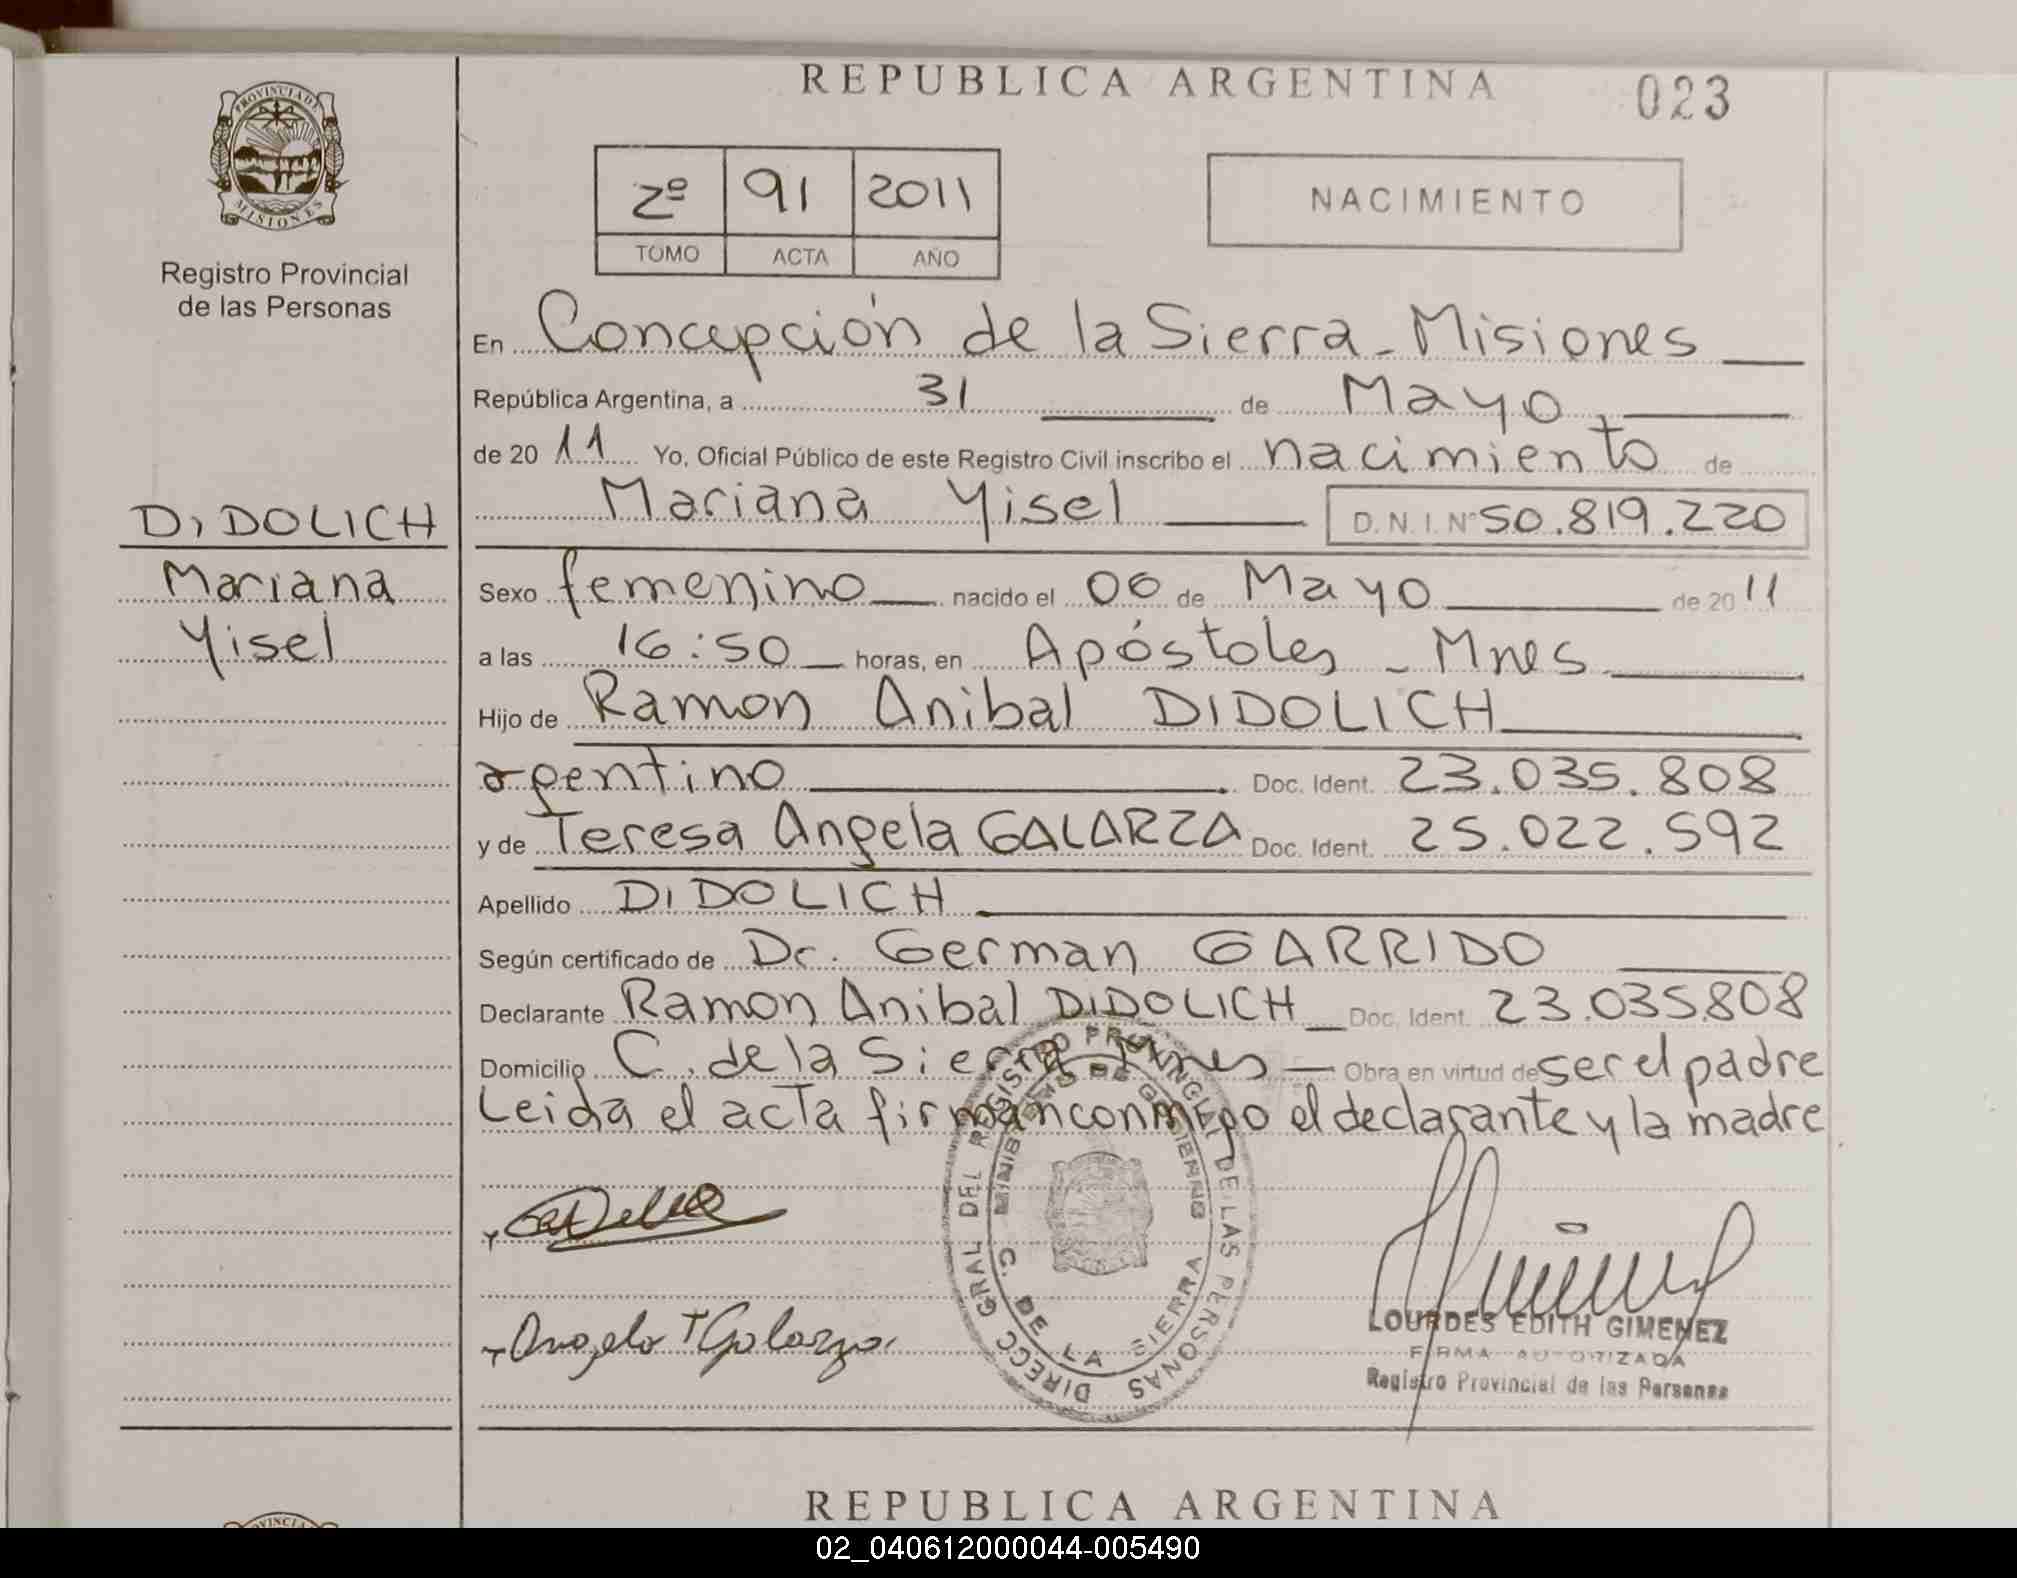 REPUBLICA ARGENTINA
023
PROVINCIA DE
MISIONES
Registro Provincial
de las Personas
2º 91 2011
TOMO ACTA AÑO
NACIMIENTO
En Concepción de la Sierra - Misiones
República Argentina, a 31 de Mayo
de 2011 Yo, Oficial Público de este Registro Civil inscribo el nacimiento de
Mariana Yisel D.N.I. Nº 50.819.220
DIDOLICH
Mariana
Yisel
Sexo femenino nacido el 06 de Mayo de 2011
a las 16:50 horas, en Apóstoles - Mnes
Hijo de Ramon Anibal DIDOLICH
argentino Doc. Ident. 23.035.808
y de Teresa Angela GALARZA Doc. Ident. 25.022.592
Apellido DIDOLICH
Según certificado de Dr. German GARRIDO
Declarante Ramon Anibal DIDOLICH Doc. Ident. 23.035.808
Domicilio C. de la Sierra Mnes Obra en virtud de ser el padre
Leida el acta firman conmigo el declarante y la madre
DIRECC GRAL DEL REGISTRO PROVINCIAL DE LAS PERSONAS
MINISTERIO DE GOBIERNO
C. DE LA SIERRA
Angela T Galarza
LOURDES EDITH GIMENEZ
FIRMA AUTORIZADA
Registro Provincial de las Personas
REPUBLICA ARGENTINA
02_040612000044-005490